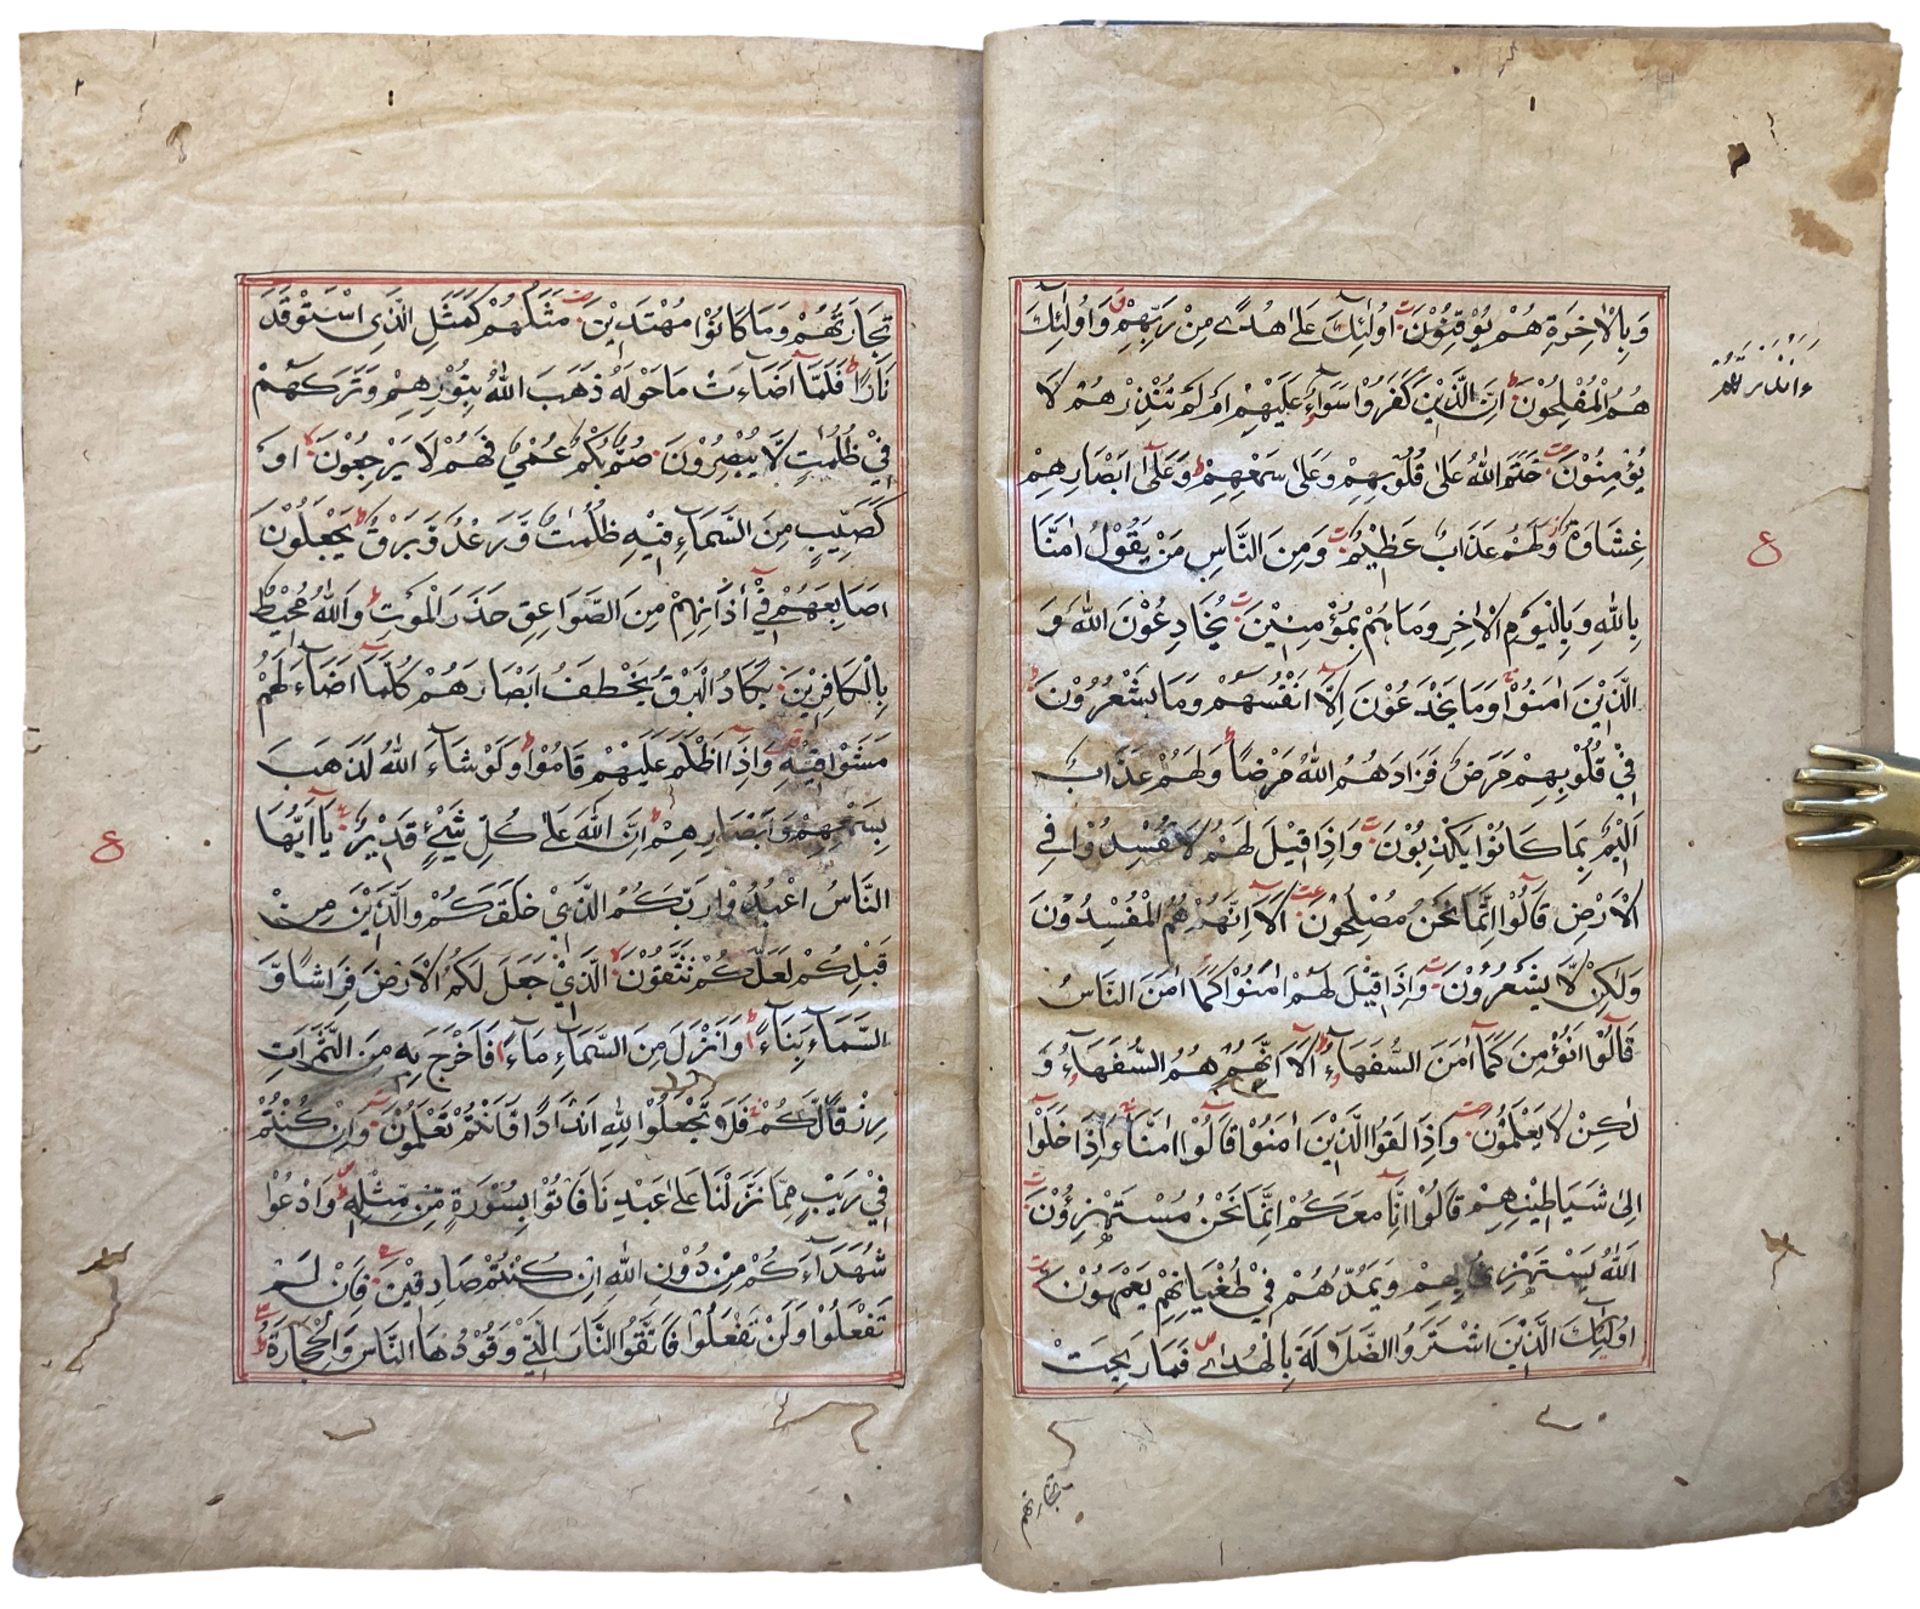 وَبِالْاٰخِرَةِ هُمْ يُوْقِنُوْنَ اُولٰٓئِكَ عَلٰى هُدًى مِنْ رَبِّهِمْ وَاُولٰٓئِكَ
هُمُ الْمُفْلِحُوْنَ اِنَّ الَّذِيْنَ كَفَرُوْا سَوَآءٌ عَلَيْهِمْ اَمْ لَمْ تُنْذِرْهُمْ لَا
يُؤْمِنُوْنَ خَتَمَ اللّٰهُ عَلٰى قُلُوْبِهِمْ وَعَلٰى سَمْعِهِمْ وَعَلٰٓى اَبْصَارِهِمْ
غِشَاوَةٌ وَلَهُمْ عَذَابٌ عَظِيْمٌ وَمِنَ النَّاسِ مَنْ يَقُوْلُ اٰمَنَّا
بِاللّٰهِ وَبِالْيَوْمِ الْاٰخِرِ وَمَا هُمْ بِمُؤْمِنِيْنَ يُخَادِعُوْنَ اللّٰهَ وَ
الَّذِيْنَ اٰمَنُوْا وَمَا يَخْدَعُوْنَ اِلَّآ اَنْفُسَهُمْ وَمَا يَشْعُرُوْنَ
فِيْ قُلُوْبِهِمْ مَرَضٌ فَزَادَهُمُ اللّٰهُ مَرَضًا وَلَهُمْ عَذَابٌ
اَلِيْمٌ بِمَا كَانُوْا يَكْذِبُوْنَ وَاِذَا قِيْلَ لَهُمْ لَا تُفْسِدُوْا فِي
الْاَرْضِ قَالُوْٓا اِنَّمَا نَحْنُ مُصْلِحُوْنَ اَلَآ اِنَّهُمْ هُمُ الْمُفْسِدُوْنَ
وَلٰكِنْ لَّا يَشْعُرُوْنَ وَاِذَا قِيْلَ لَهُمْ اٰمِنُوْا كَمَآ اٰمَنَ النَّاسُ
قَالُوْٓا اَنُؤْمِنُ كَمَآ اٰمَنَ السُّفَهَآءُ اَلَآ اِنَّهُمْ هُمُ السُّفَهَآءُ وَ
لٰكِنْ لَا يَعْلَمُوْنَ وَاِذَا لَقُوا الَّذِيْنَ اٰمَنُوْا قَالُوْٓا اٰمَنَّا وَاِذَا خَلَوْا
اِلٰى شَيَاطِيْنِهِمْ قَالُوْٓا اِنَّا مَعَكُمْ اِنَّمَا نَحْنُ مُسْتَهْزِؤُنَ
اَللّٰهُ يَسْتَهْزِئُ بِهِمْ وَيَمُدُّهُمْ فِيْ طُغْيَانِهِمْ يَعْمَهُوْنَ
اُولٰٓئِكَ الَّذِيْنَ اشْتَرَوُا الضَّلٰلَةَ بِالْهُدٰى فَمَا رَبِحَتْ
ع
تجارتهم
٢
تِجَارَتُهُمْ وَمَا كَانُوْا مُهْتَدِيْنَ مَثَلُهُمْ كَمَثَلِ الَّذِى اسْتَوْقَدَ
نَارًا فَلَمَّآ اَضَآءَتْ مَا حَوْلَهُ ذَهَبَ اللّٰهُ بِنُوْرِهِمْ وَتَرَكَهُمْ
فِيْ ظُلُمٰتٍ لَّا يُبْصِرُوْنَ صُمٌّ بُكْمٌ عُمْيٌ فَهُمْ لَا يَرْجِعُوْنَ اَوْ
كَصَيِّبٍ مِنَ السَّمَآءِ فِيْهِ ظُلُمٰتٌ وَّرَعْدٌ وَّبَرْقٌ يَجْعَلُوْنَ
اَصَابِعَهُمْ فِيْٓ اٰذَانِهِمْ مِنَ الصَّوَاعِقِ حَذَرَ الْمَوْتِ وَاللّٰهُ مُحِيْطٌ
بِالْكَافِرِيْنَ يَكَادُ الْبَرْقُ يَخْطَفُ اَبْصَارَهُمْ كُلَّمَآ اَضَآءَ لَهُمْ
مَشَوْا فِيْهِ وَاِذَآ اَظْلَمَ عَلَيْهِمْ قَامُوْا وَلَوْ شَآءَ اللّٰهُ لَذَهَبَ
بِسَمْعِهِمْ وَاَبْصَارِهِمْ اِنَّ اللّٰهَ عَلٰى كُلِّ شَيْءٍ قَدِيْرٌ يَآ اَيُّهَا
النَّاسُ اعْبُدُوْا رَبَّكُمُ الَّذِيْ خَلَقَكُمْ وَالَّذِيْنَ مِنْ
قَبْلِكُمْ لَعَلَّكُمْ تَتَّقُوْنَ الَّذِيْ جَعَلَ لَكُمُ الْاَرْضَ فِرَاشًا وَّ
السَّمَآءَ بِنَآءً وَاَنْزَلَ مِنَ السَّمَآءِ مَآءً فَاَخْرَجَ بِهٖ مِنَ الثَّمَرَاتِ
رِزْقًا لَّكُمْ فَلَا تَجْعَلُوْا لِلّٰهِ اَنْدَادًا وَّاَنْتُمْ تَعْلَمُوْنَ وَاِنْ كُنْتُمْ
فِيْ رَيْبٍ مِمَّا نَزَّلْنَا عَلٰى عَبْدِنَا فَاْتُوْا بِسُوْرَةٍ مِّنْ مِّثْلِهٖ وَادْعُوْا
شُهَدَآءَكُمْ مِنْ دُوْنِ اللّٰهِ اِنْ كُنْتُمْ صَادِقِيْنَ فَاِنْ لَمْ
تَفْعَلُوْا وَلَنْ تَفْعَلُوْا فَاتَّقُوا النَّارَ الَّتِيْ وَقُوْدُهَا النَّاسُ وَالْحِجَارَةُ
ع